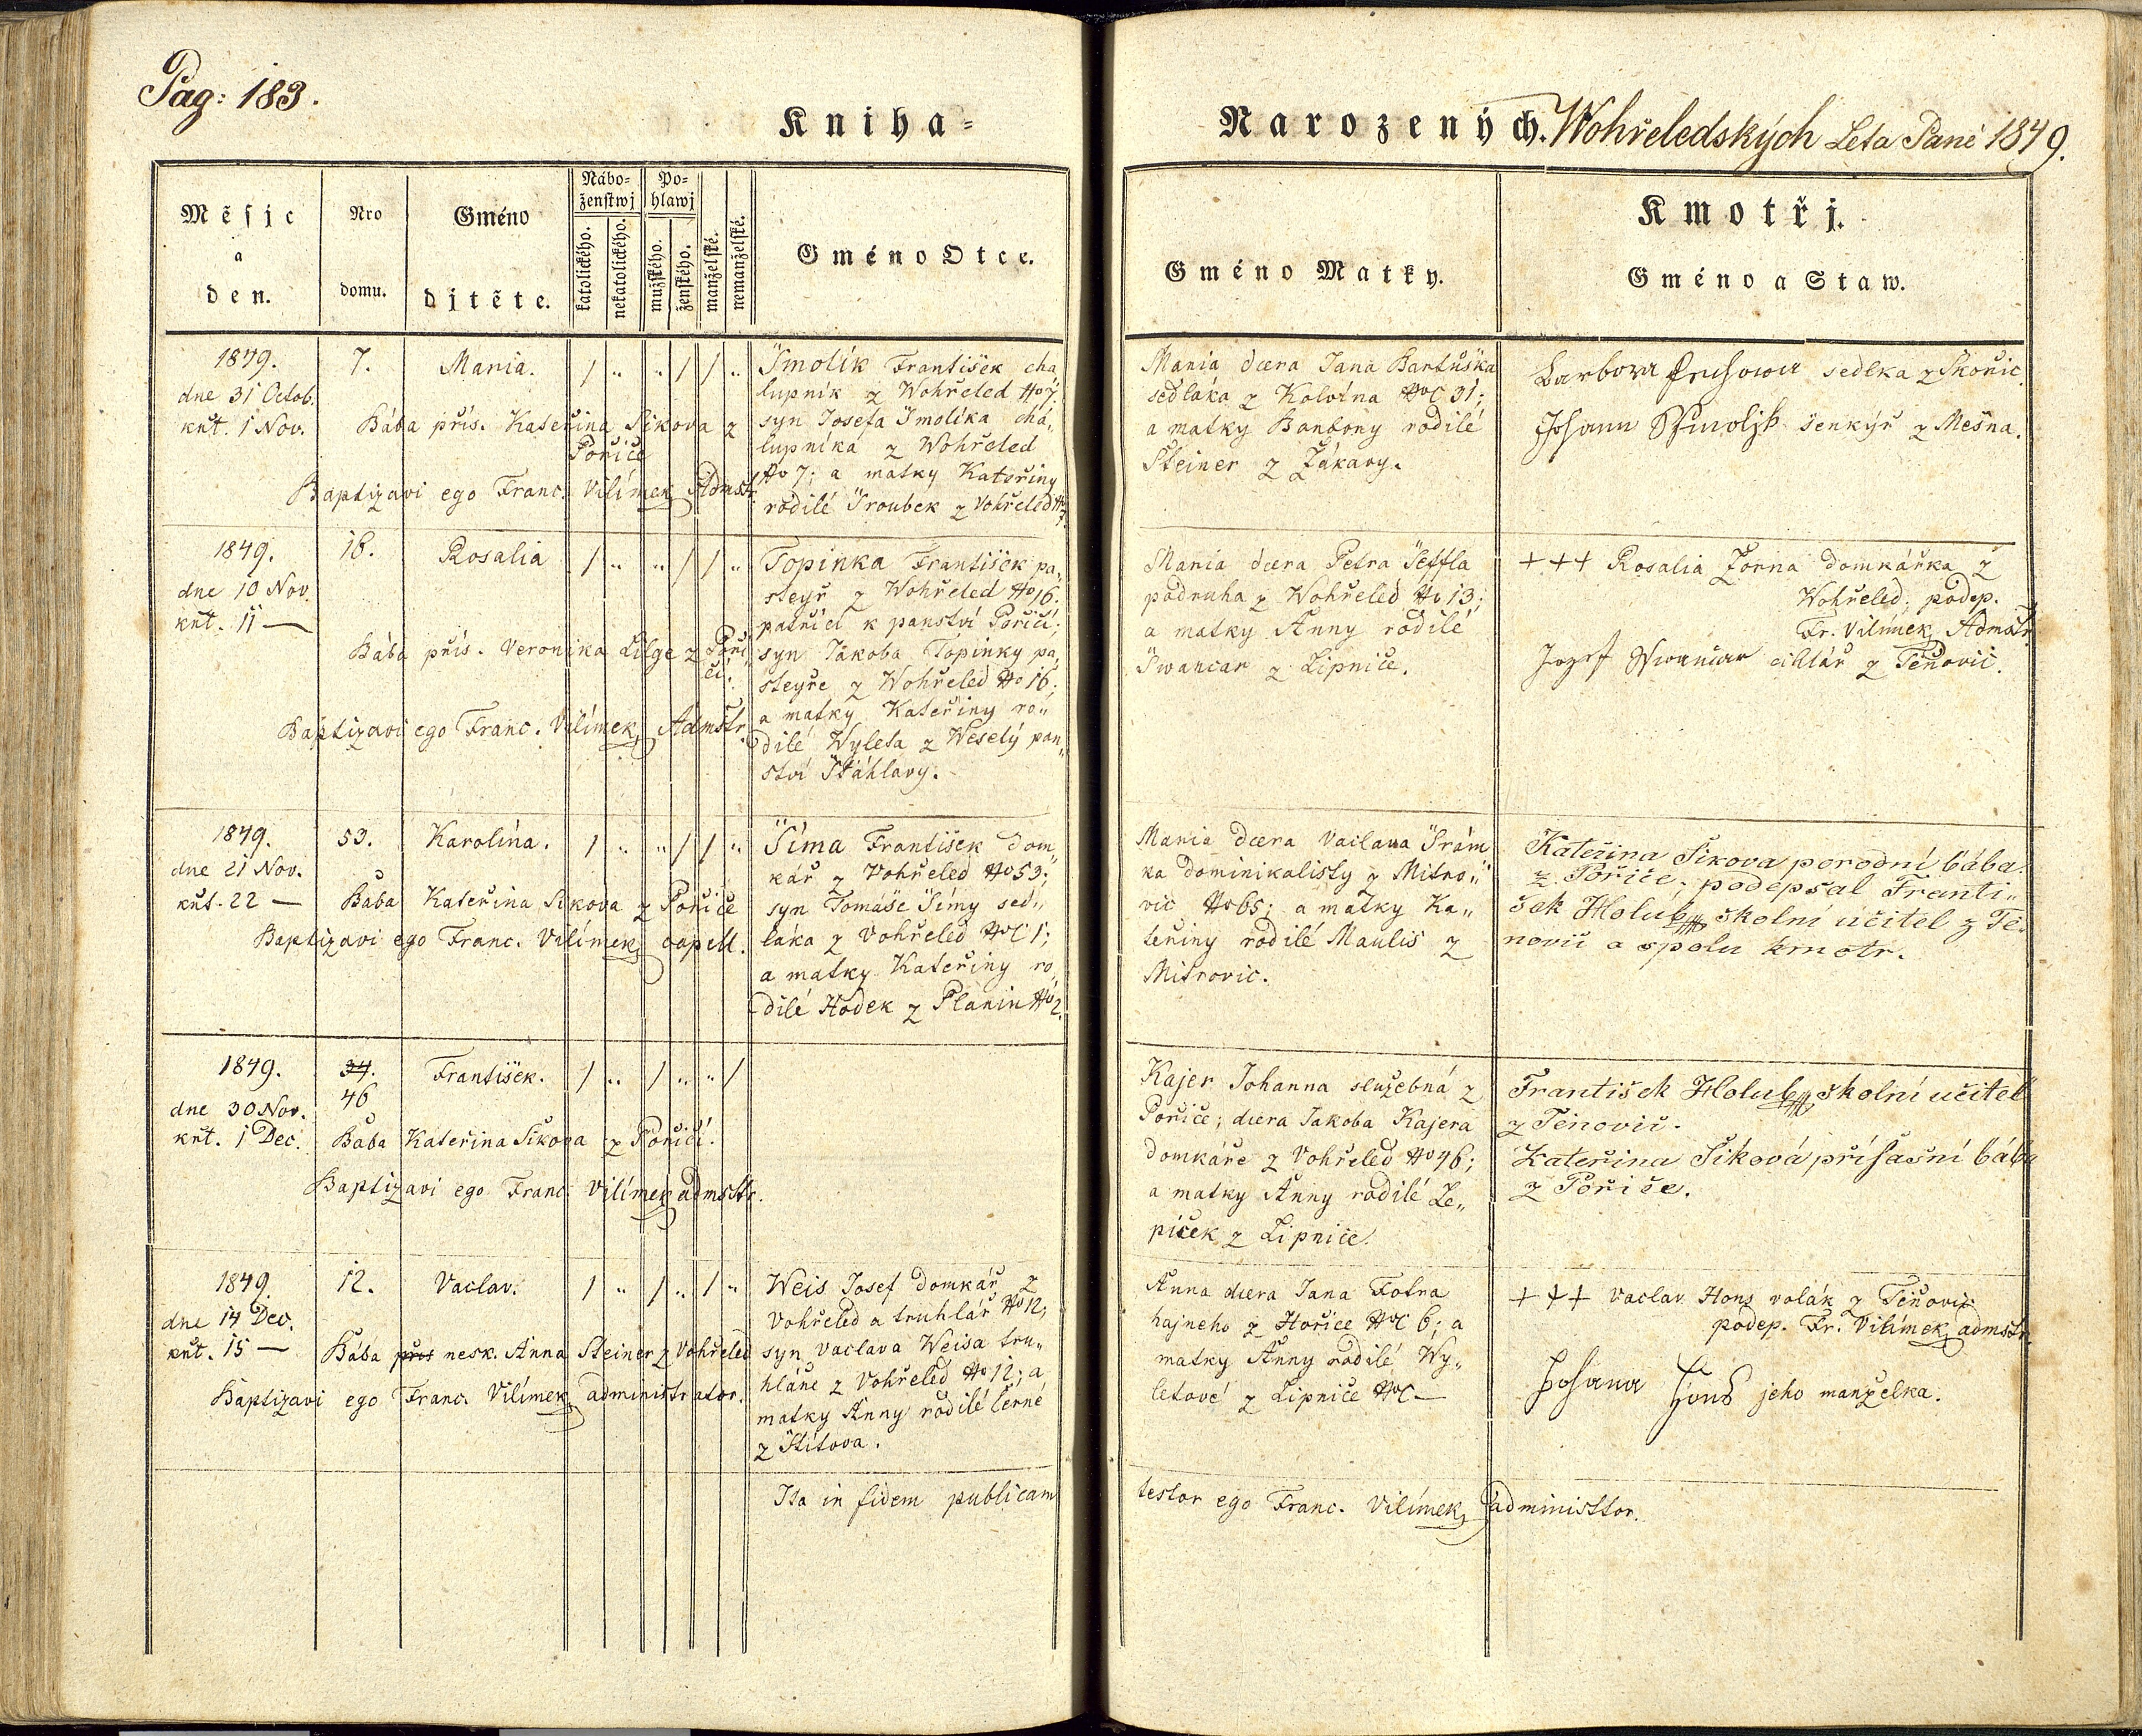 Pag: 183.
Kniha=
Narozených. Wohřeledských Leta Paně 1849.
Měsjc
a
den.
Nro
domu.
Gméno
djtěte.
Nábo=
ženstwj
katolického.
nekatolického.
Po=
hlawj
mužského.
ženského.
manželské.
nemanželské.
Gméno Otce.
Gméno Matky.
Kmotřj.
Gméno a Staw.
1849.
dne 31 Octob.
křt. 1 Nov.
7.
Maria.
/ " " / / "
Bába přís. Kateřina Sikova z
Poříče
Baptizavi ego Franc. Vilímek Admstr.
Smolík František cha
lupník z Wohřeled No 7.
syn Josefa Smolíka cha,,
lupníka z Wohřeled
No 7; a matky Kateřiny
rodilé Sroubek z Vohřeled No 7.
Maria dcera Jana Bartuška
sedláka z Kolvína NoC 31;
a matky Barbory rodilé
Steiner z Žákavy.
Barbora sedlka z Skořic.
Johann Smoljk šenkýř z Mešna.
1849.
dne 10 Nov
křt. 11 —
16.
Rosalia
/ " " / / "
Bába přís. Veronika Lilge z Poří
čí.
Baptizavi ego Franc. Vilímek Admstr.
Topinka František pa,,
steyř z Wohřeled No 16.
patřící k panství Poříčí;
syn Jakoba Topinky pa,,
steyře z Wohřeled No 16;
a matky Kateřiny ro,,
dilé Wyleta z Weselý pan,,
ství Štáhlavy.
Maria dcera Petra Šeffla
podruha z Wohřeled No 13;
a matky Anny rodilé
Swancar z Lipnice.
+++ Rosalia Žorna domkářka z
Wohřeled; podep.
Fr. Vilímek Admstr
Jozef Swančar cihlář z Těňovic.
1849.
dne 21 Nov.
křt. 22 —
53.
Karolína.
/ " " / / "
Bába Kateřina Sikova z Poříče
Baptizavi ego Franc. Vilímek capell.
Síma František dom,,
kář z Vohřeled No 53;
syn Tomáše Símy sed,,
láka z Vohřeled NoC 1;
a matky Kateřiny ro,,
dilé Hodek z Planin No 2.
Maria dcera Vaclava Srám
ka dominikalisty z Mitro,,
vic No 65; a matky Ka,,
teřiny rodilé Maulis z
Mitrovic.
Kateřina Sikova porodní bába
z Poříče. podepsal Franti,,
šek Holub školní učitel z Tě,,
novic a spolu kmotr.
1849.
dne 30 Nov.
křt. 1 Dec.
34.
46
František.
/ " / " " /
Bába Kateřina Sikova z Poříčí.
Baptizavi ego Franc. Vilímek admstr.
Kajer Johanna služebná z
Poříče; dcera Jakoba Kajera
domkáře z Vohřeled No 46;
a matky Anny rodilé Le,,
píček z Lipnice.
František Holub školní učitel
z Těnovic.
Kateřina Síková přísažní bába
z Poříče.
1849.
dne 14 Dec.
křt. 15 —
12.
Vaclav.
/ " / " / "
Bába přís nesk. Anna Steiner z Vohřeled
Baptizavi ego Franc. Vilímek administrator.
Weis Josef domkář z
Vohřeled a truhlář No 12,
syn Vaclava Weisa tru,,
hláře z Vohřeled No 12; a
matky Anny rodilé Černé
z Štítova.
Anna dcera Jana Fotra
hajneho z Hořice NoC 6; a
matky Anny rodilé Wy,,
letové z Lipnice NoC —
+++ Vaclav Hons rolák z Těňovic
podep. Fr. Vilímek admstr.
Johana Hons jeho manželka.
Ita in fidem publicam
testor ego Franc. Vilímek administtor.